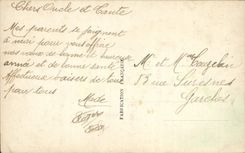 Chers Oncle et Tante
Mes parents se joignent
à moi pour vous offrir
nos vœux de bonne et heureuse
année et de bonne santé
Affectueux baisers de tous
pour tous
Mado
Roger
FABRICATION FRANÇAISE
M et Mme
13 rue Suresnes
Garches